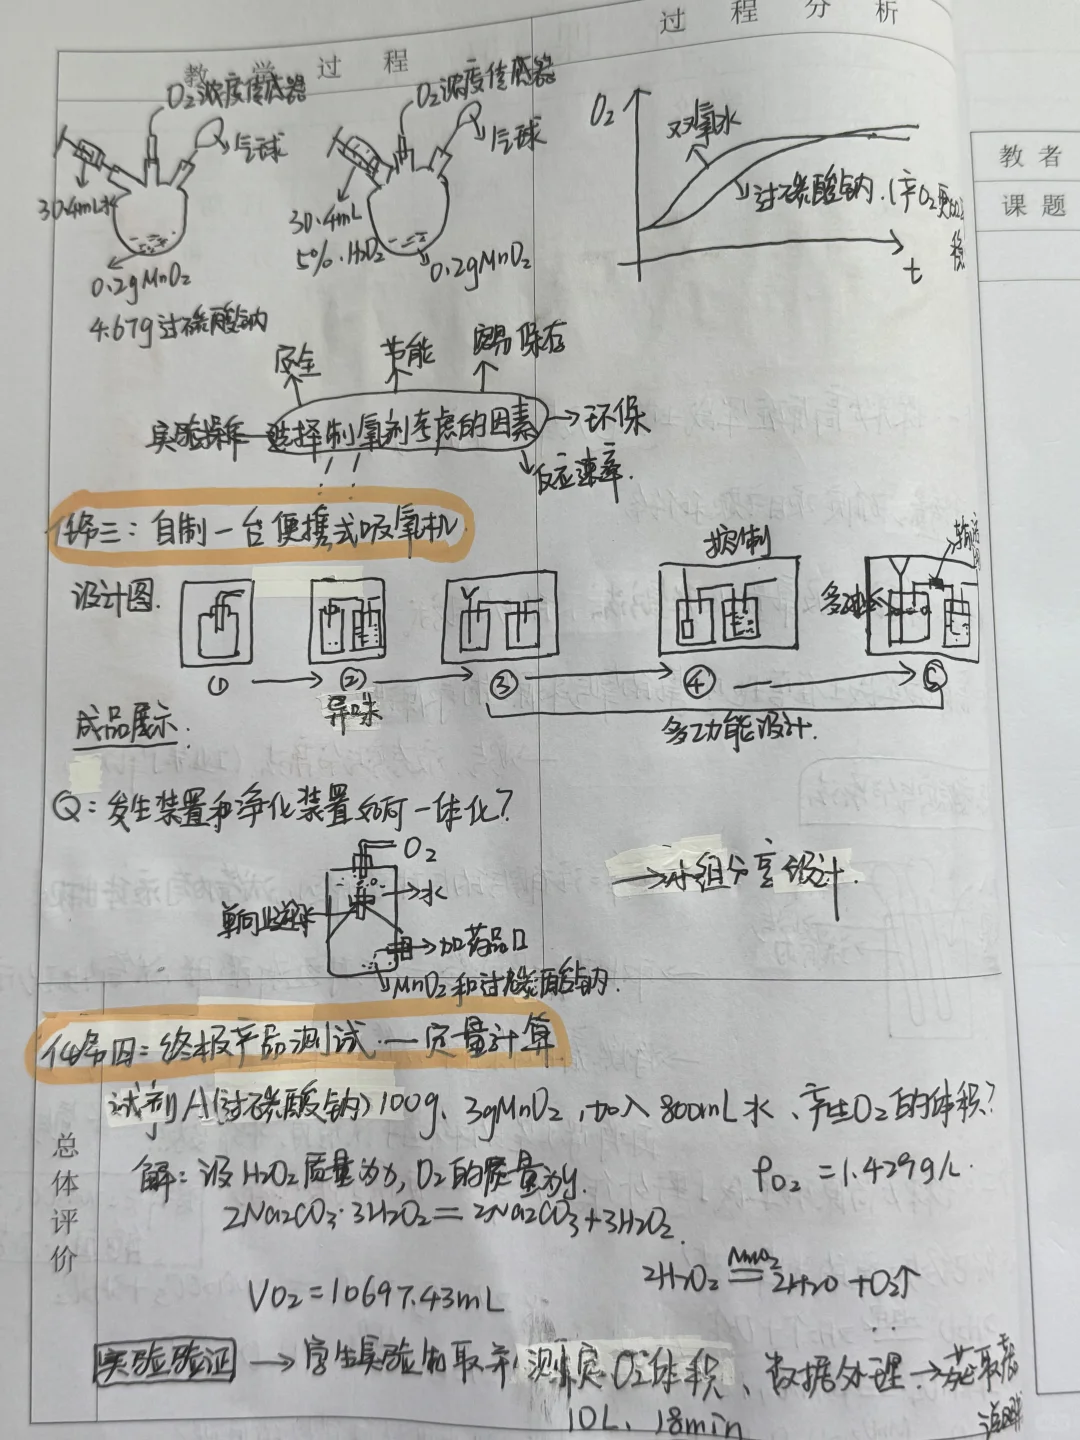 教学过程
过程分析
教者
课题
O2浓度传感器
气球
30.4mL水
0.2gMnO2
4.67g过碳酸钠
O2浓度传感器
气球
30.4mL
5%·H2O2
0.2gMnO2
O2
双氧水
过碳酸钠.(产O2更
稳
t
安全
节能
容易保存
实验操作
选择制氧剂考虑的因素
环保
反应速率.
任务三:自制一台便携式吸氧机
设计图.
控制
① ② ③ ④ ⑤
异味
多功能设计.
成品展示.
Q:发生装置和净化装置如何一体化?
O2
水
单向止逆
加药品口
MnO2和过碳酸钠.
→小组分享设计.
总体评价
任务四:终极产品测试.—定量计算
试剂A(过碳酸钠)100g、3gMnO2,加入800mL水、产生O2的体积?
解:设H2O2质量为x,O2的质量为y.
ρO2=1.429g/L.
2Na2CO3·3H2O2=2Na2CO3+3H2O2.
2H2O2 MnO2 2H2O+O2↑
VO2=10697.43mL
实验验证→学生实验 测定O2体积、数据处理→
10L、18min